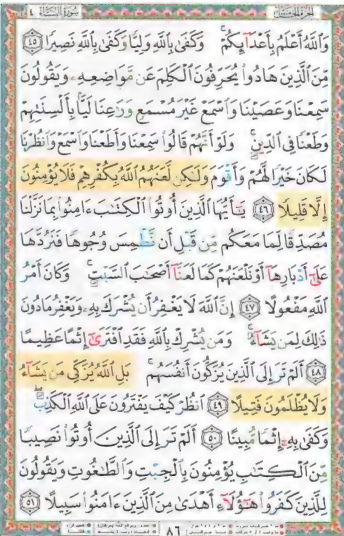 الجزء الخامس سورة النساء ٤
وَاللَّهُ أَعْلَمُ بِأَعْدَآئِكُمْ ۚ وَكَفَىٰ بِاللَّهِ وَلِيًّا وَكَفَىٰ بِاللَّهِ نَصِيرًا ۝٤٥
مِّنَ الَّذِينَ هَادُوا يُحَرِّفُونَ الْكَلِمَ عَن مَّوَاضِعِهِۦ وَيَقُولُونَ
سَمِعْنَا وَعَصَيْنَا وَاسْمَعْ غَيْرَ مُسْمَعٍ وَرَٰعِنَا لَيًّۢا بِأَلْسِنَتِهِمْ
وَطَعْنًا فِي الدِّينِ ۚ وَلَوْ أَنَّهُمْ قَالُوا سَمِعْنَا وَأَطَعْنَا وَاسْمَعْ وَانظُرْنَا
لَكَانَ خَيْرًا لَّهُمْ وَأَقْوَمَ وَلَٰكِن لَّعَنَهُمُ اللَّهُ بِكُفْرِهِمْ فَلَا يُؤْمِنُونَ
إِلَّا قَلِيلًا ۝٤٦ يَٰٓأَيُّهَا الَّذِينَ أُوتُوا الْكِتَٰبَ ءَامِنُوا بِمَا نَزَّلْنَا
مُصَدِّقًا لِّمَا مَعَكُم مِّن قَبْلِ أَن نَّطْمِسَ وُجُوهًا فَنَرُدَّهَا
عَلَىٰٓ أَدْبَارِهَآ أَوْ نَلْعَنَهُمْ كَمَا لَعَنَّآ أَصْحَٰبَ السَّبْتِ ۚ وَكَانَ أَمْرُ
اللَّهِ مَفْعُولًا ۝٤٧ إِنَّ اللَّهَ لَا يَغْفِرُ أَن يُشْرَكَ بِهِۦ وَيَغْفِرُ مَا دُونَ
ذَٰلِكَ لِمَن يَشَآءُ ۚ وَمَن يُشْرِكْ بِاللَّهِ فَقَدِ افْتَرَىٰٓ إِثْمًا عَظِيمًا
۝٤٨ أَلَمْ تَرَ إِلَى الَّذِينَ يُزَكُّونَ أَنفُسَهُم ۚ بَلِ اللَّهُ يُزَكِّي مَن يَشَآءُ
وَلَا يُظْلَمُونَ فَتِيلًا ۝٤٩ انظُرْ كَيْفَ يَفْتَرُونَ عَلَى اللَّهِ الْكَذِبَ ۖ
وَكَفَىٰ بِهِۦٓ إِثْمًا مُّبِينًا ۝٥٠ أَلَمْ تَرَ إِلَى الَّذِينَ أُوتُوا نَصِيبًا
مِّنَ الْكِتَٰبِ يُؤْمِنُونَ بِالْجِبْتِ وَالطَّٰغُوتِ وَيَقُولُونَ
لِلَّذِينَ كَفَرُوا هَٰٓؤُلَآءِ أَهْدَىٰ مِنَ الَّذِينَ ءَامَنُوا سَبِيلًا ۝٥١
٨٦